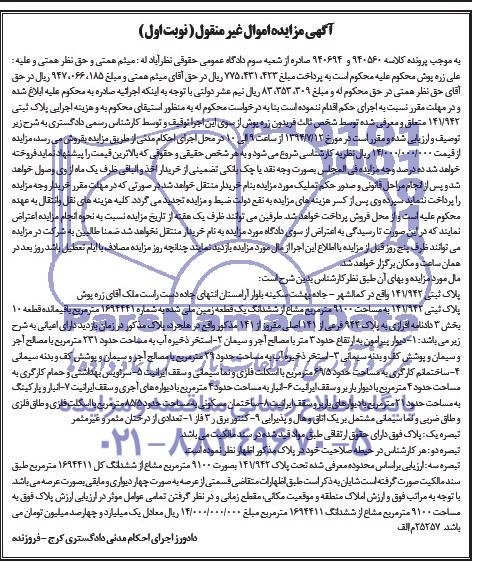 آگهی مزایده اموال غیر منقول ( نوبت اول )
به موجب پرونده کلاسه ۹۴۰۵۶۰ و ۹۴۰۶۹۴ صادره از شعبه سوم دادگاه عمومی حقوقی نظرآباد له : میثم همتی و حق نظر همتی و علیه :
علی زره پوش محکوم علیه محکوم است به پرداخت مبلغ ۷۷۵,۴۳۱,۴۲۳ ریال در حق آقای میثم همتی و مبلغ ۹۴۷,۰۶۶,۱۸۵ ریال در حق
آقای حق نظر همتی در حق محکوم له و مبلغ ۸۳,۳۵۳,۳۰۹ ریال نیم عشر دولتی با توجه به اینکه اجرائیه صادره به محکوم علیه ابلاغ شده
و در مهلت مقرر نسبت به اجرای حکم اقدام ننموده است بنا به درخواست محکوم له به منظور استیفای محکوم به و هزینه اجرایی پلاک ثبتی
۱۴۱/۹۴۲ متعلق و معرفی شده توسط شخص ثالث فریدون زره پوش از سوی این اجرا توقیف و توسط کارشناس رسمی دادگستری به شرح زیر
توصیف و ارزیابی شده و مقرر است در مورخ ۱۳۹۴/۷/۱۲ از ساعت ۹ الی ۱۰ در محل اجرای احکام مدنی از طریق مزایده بفروش می رسد، مزایده
از قیمت ۱۴/۰۰۰/۰۰۰/۰۰۰ ریال نظریه کارشناسی شروع می شود و به هر شخص حقیقی و حقوقی که بالاترین قیمت را پیشنهاد نماید فروخته
خواهد شد ده درصد وجه مزایده فی المجلس بصورت وجه نقد یا چک بانکی تضمینی از خریدار اخذ و الباقی ظرف یک ماه از وی وصول خواهد
شد و پس از انجام مراحل قانونی و صدور حکم تملیک مورد مزایده بنام خریدار منتقل خواهد شد در صورتی که در مهلت مقرر خریدار وجه مزایده
را پرداخت ننماید سپرده وی پس از کسر هزینه های مزایده به نفع دولت ضبط و مزایده تجدید می گردد. کلیه هزینه های نقل وانتقال به عهده
محکوم علیه است و از محل فروش پرداخت خواهد شد. طرفین می توانند ظرف یک هفته از تاریخ مزایده نسبت به نحوه انجام مزایده اعتراض
نمایند که در این صورت تا رسیدگی به اعتراض از سوی دادگاه مورد مزایده به نام خریدار منتقل نخواهد شد ضمنا طالبین به شرکت در مزایده
می توانند ظرف پنج روز قبل از مزایده با اطلاع این اجرا از مال مورد مزایده بازدید نمایند چنانچه روز مزایده مصادف با ایام تعطیل باشد روز بعد در
همان ساعت و مکان برگزار خواهد شد.
مال مورد مزایده و بهای آن طبق نظر کارشناس بدین شرح است:
پلاک ثبتی ۱۴۱/۹۴۲ واقع در کمالشهر - جاده بهشت سکینه بلوار آرامستان انتهای جاده دست راست ملک آقای زره پوش
پلاک ثبتی ۱۴۱/۹۴۲ به مساحت ۹۱۰۰ مترمربع مشاع از ششدانگ یک قطعه زمین ملی شده به شماره ۱۶۹۴۴۱۱ مترمربع باقیمانده قطعه ۱۰
بخش ۳ دادنامه افرازی به پلاک ۹۴۴ فرعی از ۱۴۱ اصلی مفروز از ۱۴۱ مذکور واقع در هلجرد، پلاک مذکور در زمان بازدید دارای اعیانی به شرح
زیر می باشد: ۱- دیوار پیرامون به ارتفاع حدود ۳ متر با مصالح آجر و سیمان ۲- استخر ذخیره آب به مساحت حدود ۲۳۱ مترمربع با مصالح آجر
و سیمان و پوشش کف و بدنه سیمانی ۳- استخر ذخیره آب به مساحت حدود ۲۹ مترمربع با مصالح آجر و سیمان و پوشش کف و بدنه سیمانی
۴- ساختمان کارگری به مساحت حدود ۶۹/۵ مترمربع با اسکلت فلزی و نما سیمانی و سقف ایرانیت ۵- سرویس بهداشتی و حمام کارگری به
مساحت حدود ۴ مترمربع با دیوار باربر و سقف ایرانیت ۶- انبار به مساحت حدود ۴ مترمربع با دیواره های آجری و سقف ایرانیت ۷- انبار و پارکینگ
به مساحت حدود ۲۱ مترمربع با دیوارهای باربر و سقف ایرانیت ۸- ساختمان مسکونی به مساحت حدود ۸۷/۵ مترمربع با اسکلت فلزی و طاق فلزی
و طاق ضربی و نما سیمانی مشتمل بر یک اتاق و هال و پذیرایی ۹- کنتور برق و ۳ فاز ۱۰- تعدادی از درختان مثمر و غیر مثمر
تبصره یک: پلاک فوق دارای حقوق ارتفاقی طبق مواد قید شده در سند مالکیت می باشد.
تبصره دو: هر کارشناس در حیطه صلاحیت خود در پلاک مذکور اظهار نظر نموده است.
تبصره سه: ارزیابی براساس محدوده معرفی شده تحت پلاک ۱۴۱/۹۴۲ بصورت ۹۱۰۰ مترمربع مشاع از ششدانگ کل ۱۶۹۴۴۱۱ مترمربع طبق
سند مالکیت صورت گرفته است شایان به ذکر است طبق اظهارات متقاضی قسمتی از عرصه به صورت چهار دیواری و مابقی بصورت عرصه می باشد.
با توجه به مراتب فوق و ارزش املاک منطقه و موقعیت مکانی، مقطع زمانی و در نظر گرفتن تمامی عوامل موثر در ارزیابی ارزش پلاک فوق به
مساحت ۹۱۰۰ مترمربع مشاع از ششدانگ ۱۶۹۴۴۱۱ مترمربع مبلغ ۱۴/۰۰۰/۰۰۰/۰۰۰ ریال معادل یک میلیارد و چهارصد میلیون تومان می
باشد. ۲۵۲۵۷/م/الف
دادورز اجرای احکام مدنی دادگستری کرج - فروزنده
۰۲۱-۸۸۳۴۹۶۷۰-۵